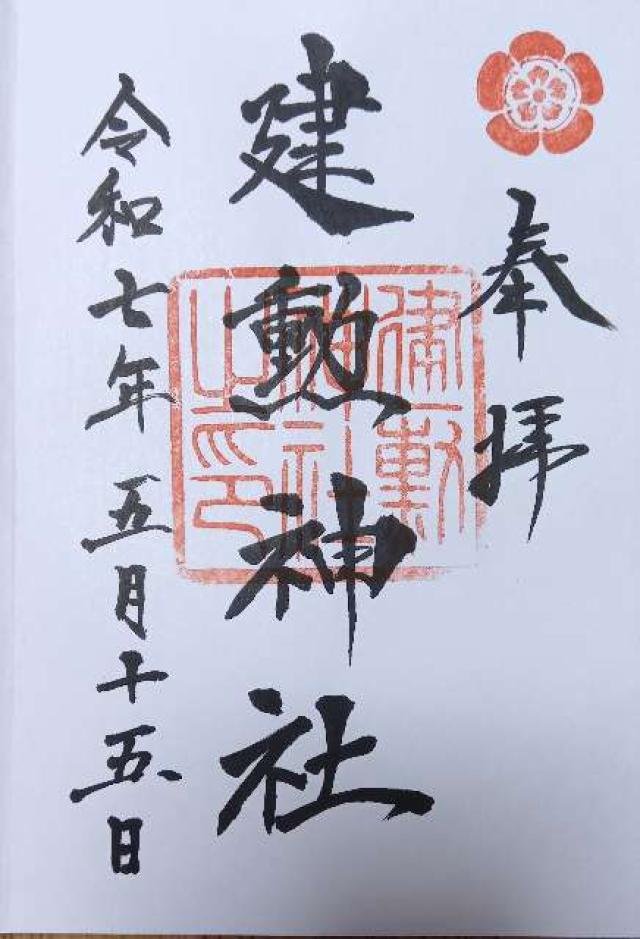 奉拝
建勲神社
建勲
神社
之印
令和七年五月十五日